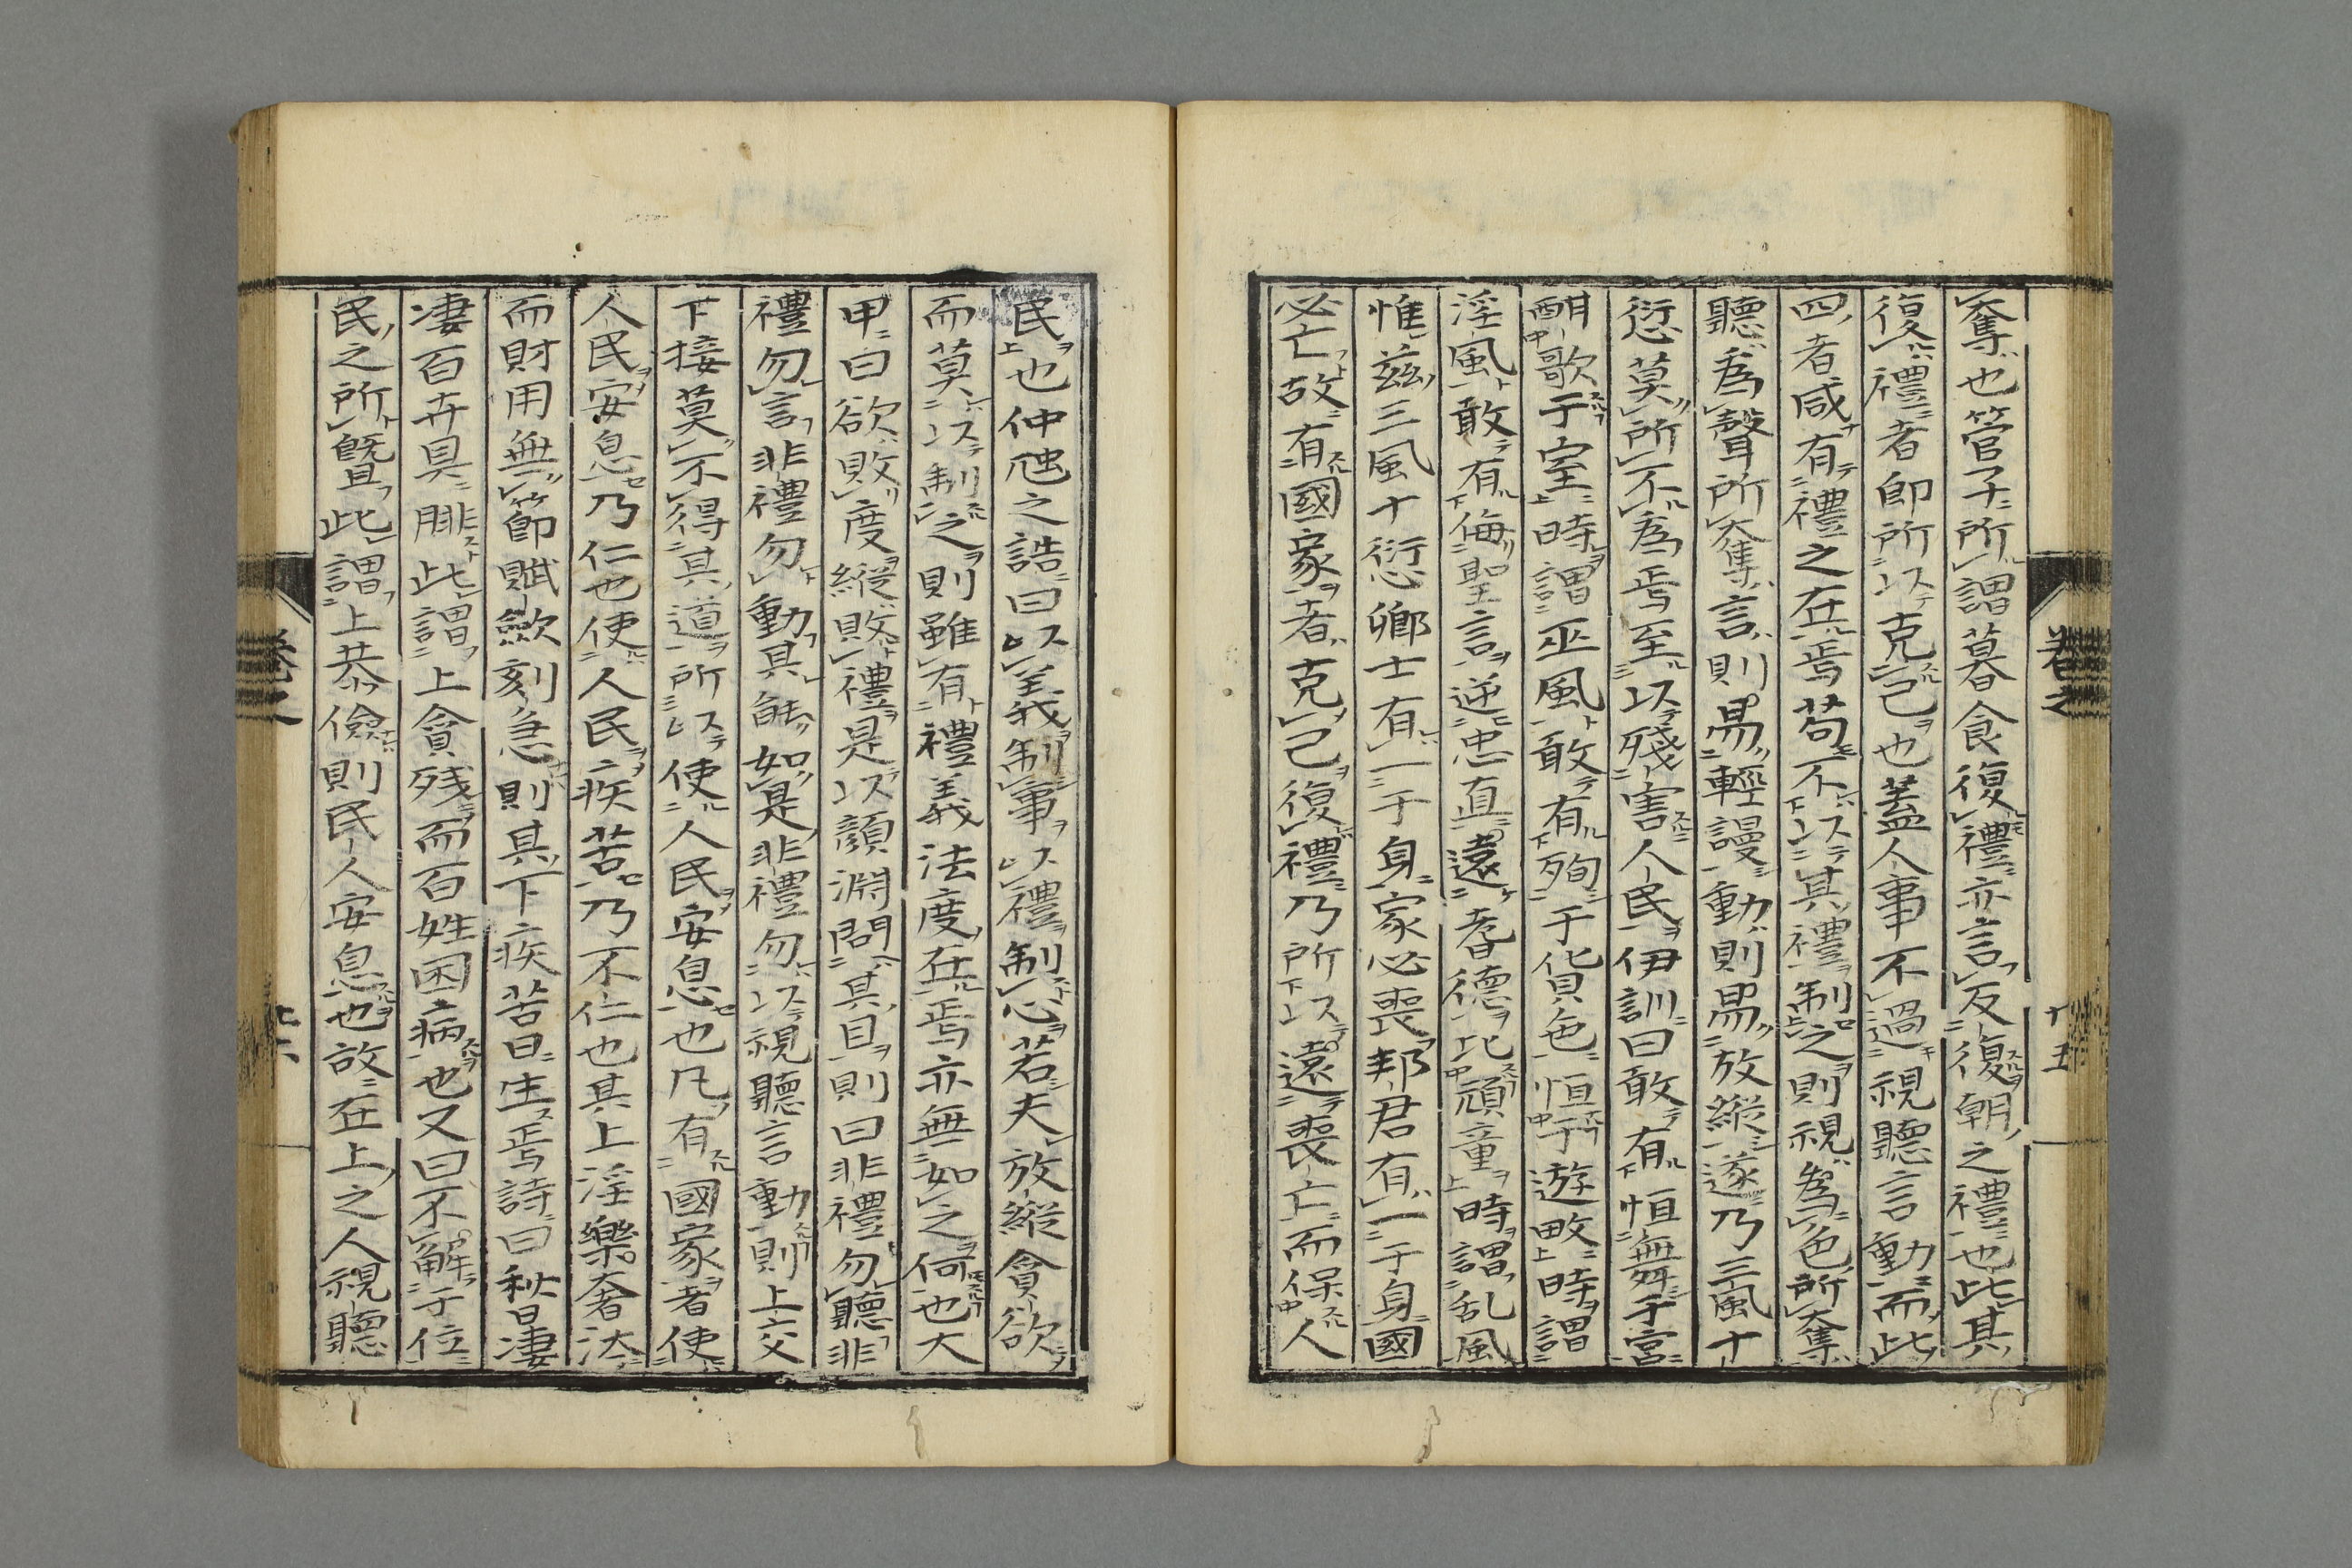 奪也管子所謂暮食復禮亦言反復朝之禮也此其
復禮者卽所以克己也蓋人事不過視聽言動而此
四者咸有禮之在焉苟不以其禮制之則視爲色所奪
聽爲聲所奪言則易輕謾動則易放縱遂乃三風十
愆莫所不爲焉至以殘害人民伊訓曰敢有恒舞于宮
酣歌于室時謂巫風敢有殉于貨色恒于遊畋時謂
淫風敢有侮聖言逆忠直遠耆德比頑童時謂乱風
惟茲三風十愆卿士有一于身家必喪邦君有一于身國
必亡故有國家者克己復禮乃所以遠喪亡而保人
卷之
十五
民也仲虺之誥曰以義制事以禮制心若夫放縱貪欲
而莫以制之則雖有禮義法度在焉亦無如之何也大
甲曰欲敗度縱敗禮是以顏淵問其目則曰非禮勿聽非
禮勿言非禮勿動其能如是非禮勿以視聽言動則上交
下接莫不得其道所以使人民安息也凡有國家者使
人民安息乃仁也使人民疾苦乃不仁也其上淫樂奢汰
而財用無節賦斂刻急則其下疾苦日生焉詩曰秋日凄
凄百卉具腓此謂上貪殘而百姓困病也又曰不解于位
民之所曁此謂上恭儉則民人安息也故在上之人視聽
卷之
十六